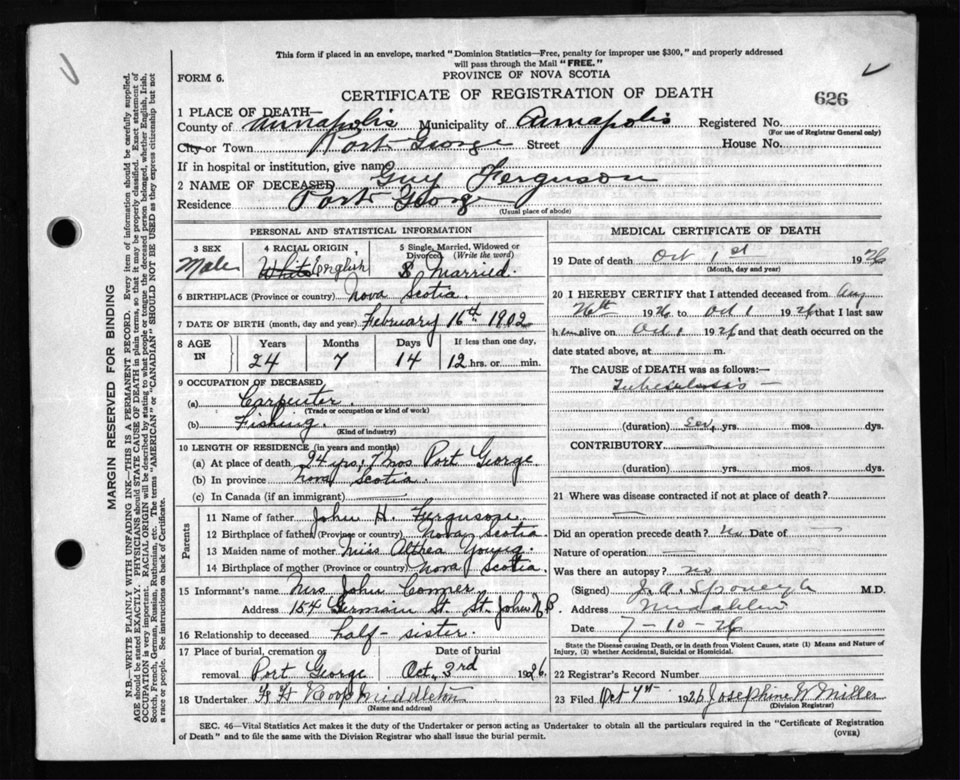 This form if placed in an envelope, marked "Dominion Statistics—Free, penalty for improper use $300," and properly addressed
will pass through the Mail "FREE."
FORM 6.
PROVINCE OF NOVA SCOTIA
CERTIFICATE OF REGISTRATION OF DEATH
626
1 PLACE OF DEATH—
County of Annapolis Municipality of Annapolis Registered No.
(For use of Registrar General only)
City or Town Port George Street House No.
If in hospital or institution, give name
2 NAME OF DECEASED Guy Ferguson
Residence Port George
(Usual place of abode)
PERSONAL AND STATISTICAL INFORMATION
3 SEX
Male
4 RACIAL ORIGIN
White English
5 Single, Married, Widowed or
Divorced (Write the word)
S Married.
6 BIRTHPLACE (Province or country) Nova Scotia.
7 DATE OF BIRTH (month, day and year) February 16th 1902
8 AGE IN
Years Months Days If less than one day,
24 7 14 12 hrs. or min.
9 OCCUPATION OF DECEASED
(a) Carpenter.
(Trade or occupation or kind of work)
(b) Fishing.
(Kind of industry)
10 LENGTH OF RESIDENCE (in years and months)
(a) At place of death 24 yrs, 7 mos Port George.
(b) In province Nova Scotia.
(c) In Canada (if an immigrant)
Parents
11 Name of father John H. Ferguson
12 Birthplace of father (Province or country) Nova Scotia
13 Maiden name of mother Miss Althea Young.
14 Birthplace of mother (Province or country) Nova Scotia.
15 Informant's name Mrs John
Address 154 Germain St. St. John N.B.
16 Relationship to deceased half-sister.
17 Place of burial, cremation or Date of burial
removal Port George Oct. 3rd 1926.
18 Undertaker Roop Middleton
(Name and address)
MEDICAL CERTIFICATE OF DEATH
19 Date of death Oct 1st 1926
(Month, day and year)
20 I HEREBY CERTIFY that I attended deceased from Aug
26th 1926 to Oct 1 1926 that I last saw
him alive on Oct 1 1926 and that death occurred on the
date stated above, at m.
The CAUSE of DEATH was as follows:—
Tuberculosis —
(duration) yrs. mos. dys.
CONTRIBUTORY
(duration) yrs. mos. dys.
21 Where was disease contracted if not at place of death?
—
Did an operation precede death? No Date of —
Nature of operation —
Was there an autopsy? no
(Signed) J. A. M.D.
Address Middleton
Date 7-10-26
State the Disease causing Death, or in death from Violent Causes, state (1) Means and Nature of
Injury, (2) whether Accidental, Suicidal or Homicidal.
22 Registrar's Record Number
23 Filed Oct 7th 1926 Josephine W Miller
(Division Registrar)
SEC. 46—Vital Statistics Act makes it the duty of the Undertaker or person acting as Undertaker to obtain all the particulars required in the "Certificate of Registration
of Death" and to file the same with the Division Registrar who shall issue the burial permit.
(OVER)
MARGIN RESERVED FOR BINDING
N.B.—WRITE PLAINLY WITH UNFADING INK—THIS IS A PERMANENT RECORD. Every item of information should be carefully supplied.
AGE should be stated EXACTLY. PHYSICIANS should STATE CAUSE OF DEATH in plain terms, so that it may be properly classified. Exact statement of
OCCUPATION is very important. RACIAL ORIGIN will be described by stating to what people or tongue the deceased person belonged, whether English, Irish,
Scotch, French, German, Russian, Ruthenian, etc. The terms "AMERICAN" or "CANADIAN" SHOULD NOT BE USED as they express citizenship but not
a race or people. See instructions on back of Certificate.